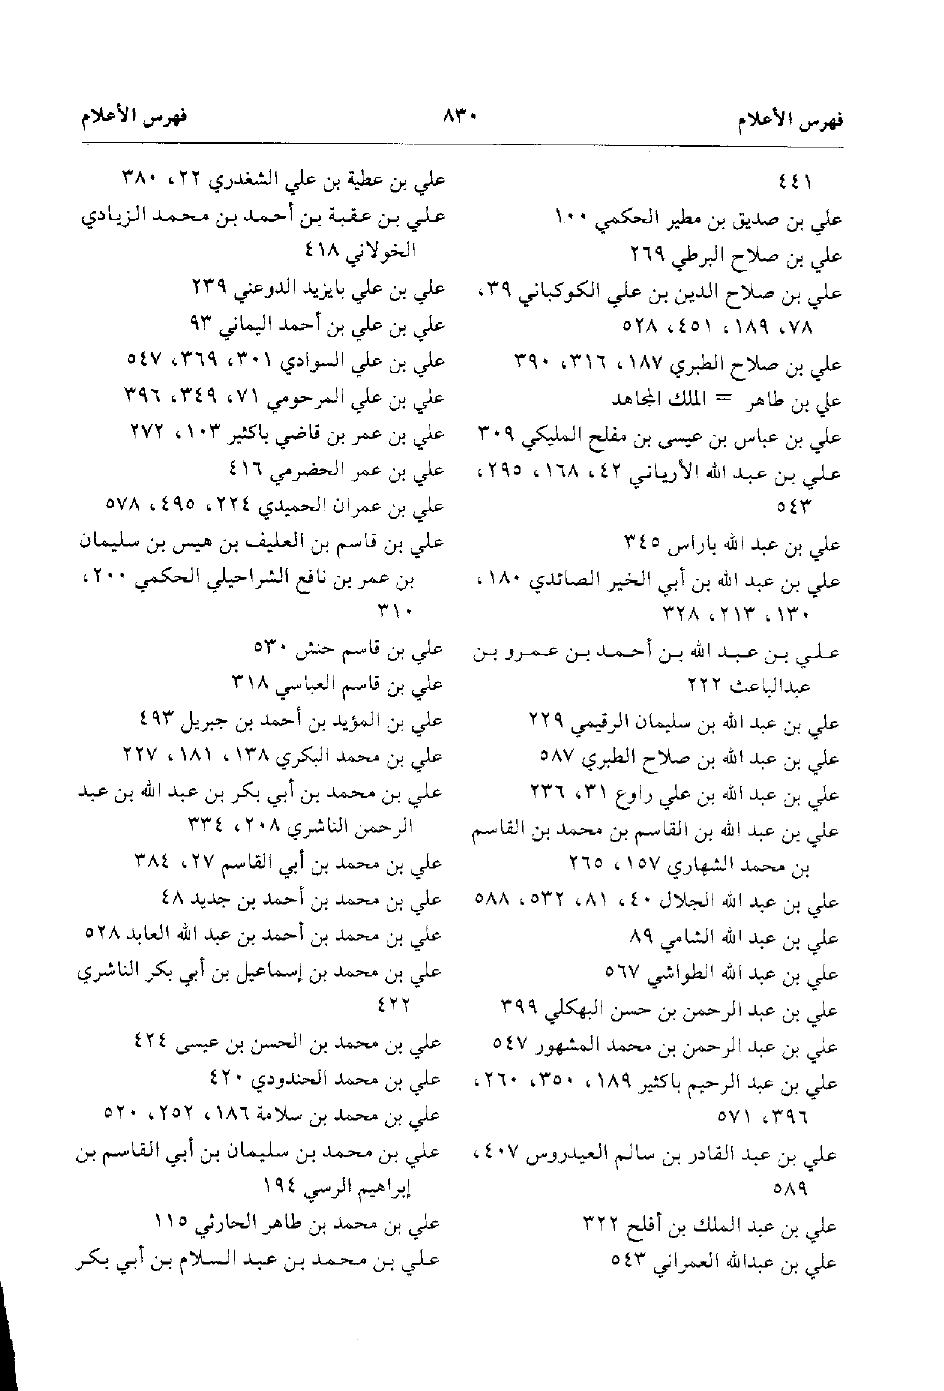 فهرس الأعلام
٨٣٠
فهرس الأعلام
٤٤١
علي بن صديق بن مطير الحكمي ١٠٠
علي بن صلاح البرطي ٢٦٩
علي بن صلاح الدين بن علي الكوكباني ٣٩،
٧٨، ١٨٩، ٤٥١، ٥٢٨
علي بن صلاح الطبري ١٨٧، ٣١٦، ٣٩٠
علي بن طاهر = الملك المجاهد
علي بن عباس بن عيسى بن مفلح المليكي ٣٠٩
علي بن عبد الله الأرياني ٤٢، ١٦٨، ٢٩٥،
٥٤٣
علي بن عبد الله باراس ٣٤٥
علي بن عبد الله بن أبي الخير الصائدي ١٨٠،
١٣٠، ٢١٣، ٣٢٨
علي بن عبد الله بن أحمد بن عمرو بن
عبدالباعث ٢٢٢
علي بن عبد الله بن سليمان الرقيمي ٢٢٩
علي بن عبد الله بن صلاح الطبري ٥٨٧
علي بن عبد الله بن علي راوع ٣١، ٢٣٦
علي بن عبد الله بن القاسم بن محمد بن القاسم
بن محمد الشهاري ١٥٧، ٢٦٥
علي بن عبد الله الجلال ٤٠، ٨١، ٥٣٢، ٥٨٨
علي بن عبد الله الشامي ٨٩
علي بن عبد الله الطواشي ٥٦٧
علي بن عبد الرحمن بن حسن البهكلي ٣٩٩
علي بن عبد الرحمن بن محمد المشهور ٥٤٧
علي بن عبد الرحيم باكثير ١٨٩، ٣٥٠، ٢٦٠،
٣٩٦، ٥٧١
علي بن عبد القادر بن سالم العيدروس ٤٠٧،
٥٨٩
علي بن عبد الملك بن أفلح ٣٢٢
علي بن عبدالله العمراني ٥٤٣
علي بن عطية بن علي الشغدري ٢٢، ٣٨٠
علي بن عقبة بن أحمد بن محمد الزيادي
الخولاني ٤١٨
علي بن علي بايزيد الدوعني ٢٣٩
علي بن علي بن أحمد اليماني ٩٣
علي بن علي السوادي ٣٠١، ٣٦٩، ٥٤٧
علي بن علي المرحومي ٧١، ٣٤٩، ٣٩٦
علي بن عمر بن قاضي باكثير ١٠٣، ٢٧٢
علي بن عمر الحضرمي ٤١٦
علي بن عمران الحميدي ٢٢٤، ٤٩٥، ٥٧٨
علي بن قاسم بن العليف بن هيس بن سليمان
بن عمر بن نافع الشراحيلي الحكمي ٢٠٠،
٣١٠
علي بن قاسم حنش ٥٣٠
علي بن قاسم العباسي ٣١٨
علي بن المؤيد بن أحمد بن جبريل ٤٩٣
علي بن محمد البكري ١٣٨، ١٨١، ٢٢٧
علي بن محمد بن أبي بكر بن عبد الله بن عبد
الرحمن الناشري ٢٠٨، ٣٣٤
علي بن محمد بن أبي القاسم ٢٧، ٣٨٤
علي بن محمد بن أحمد بن جديد ٤٨
علي بن محمد بن أحمد بن عبد الله العابد ٥٢٨
علي بن محمد بن إسماعيل بن أبي بكر الناشري
٤٢٢
علي بن محمد بن الحسن بن عيسى ٤٢٤
علي بن محمد الحندودي ٤٢٠
علي بن محمد بن سلامة ١٨٦، ٢٥٢، ٥٢٠
علي بن محمد بن سليمان بن أبي القاسم بن
إبراهيم الرسي ١٩٤
علي بن محمد بن طاهر الحارثي ١١٥
علي بن محمد بن عبد السلام بن أبي بكر